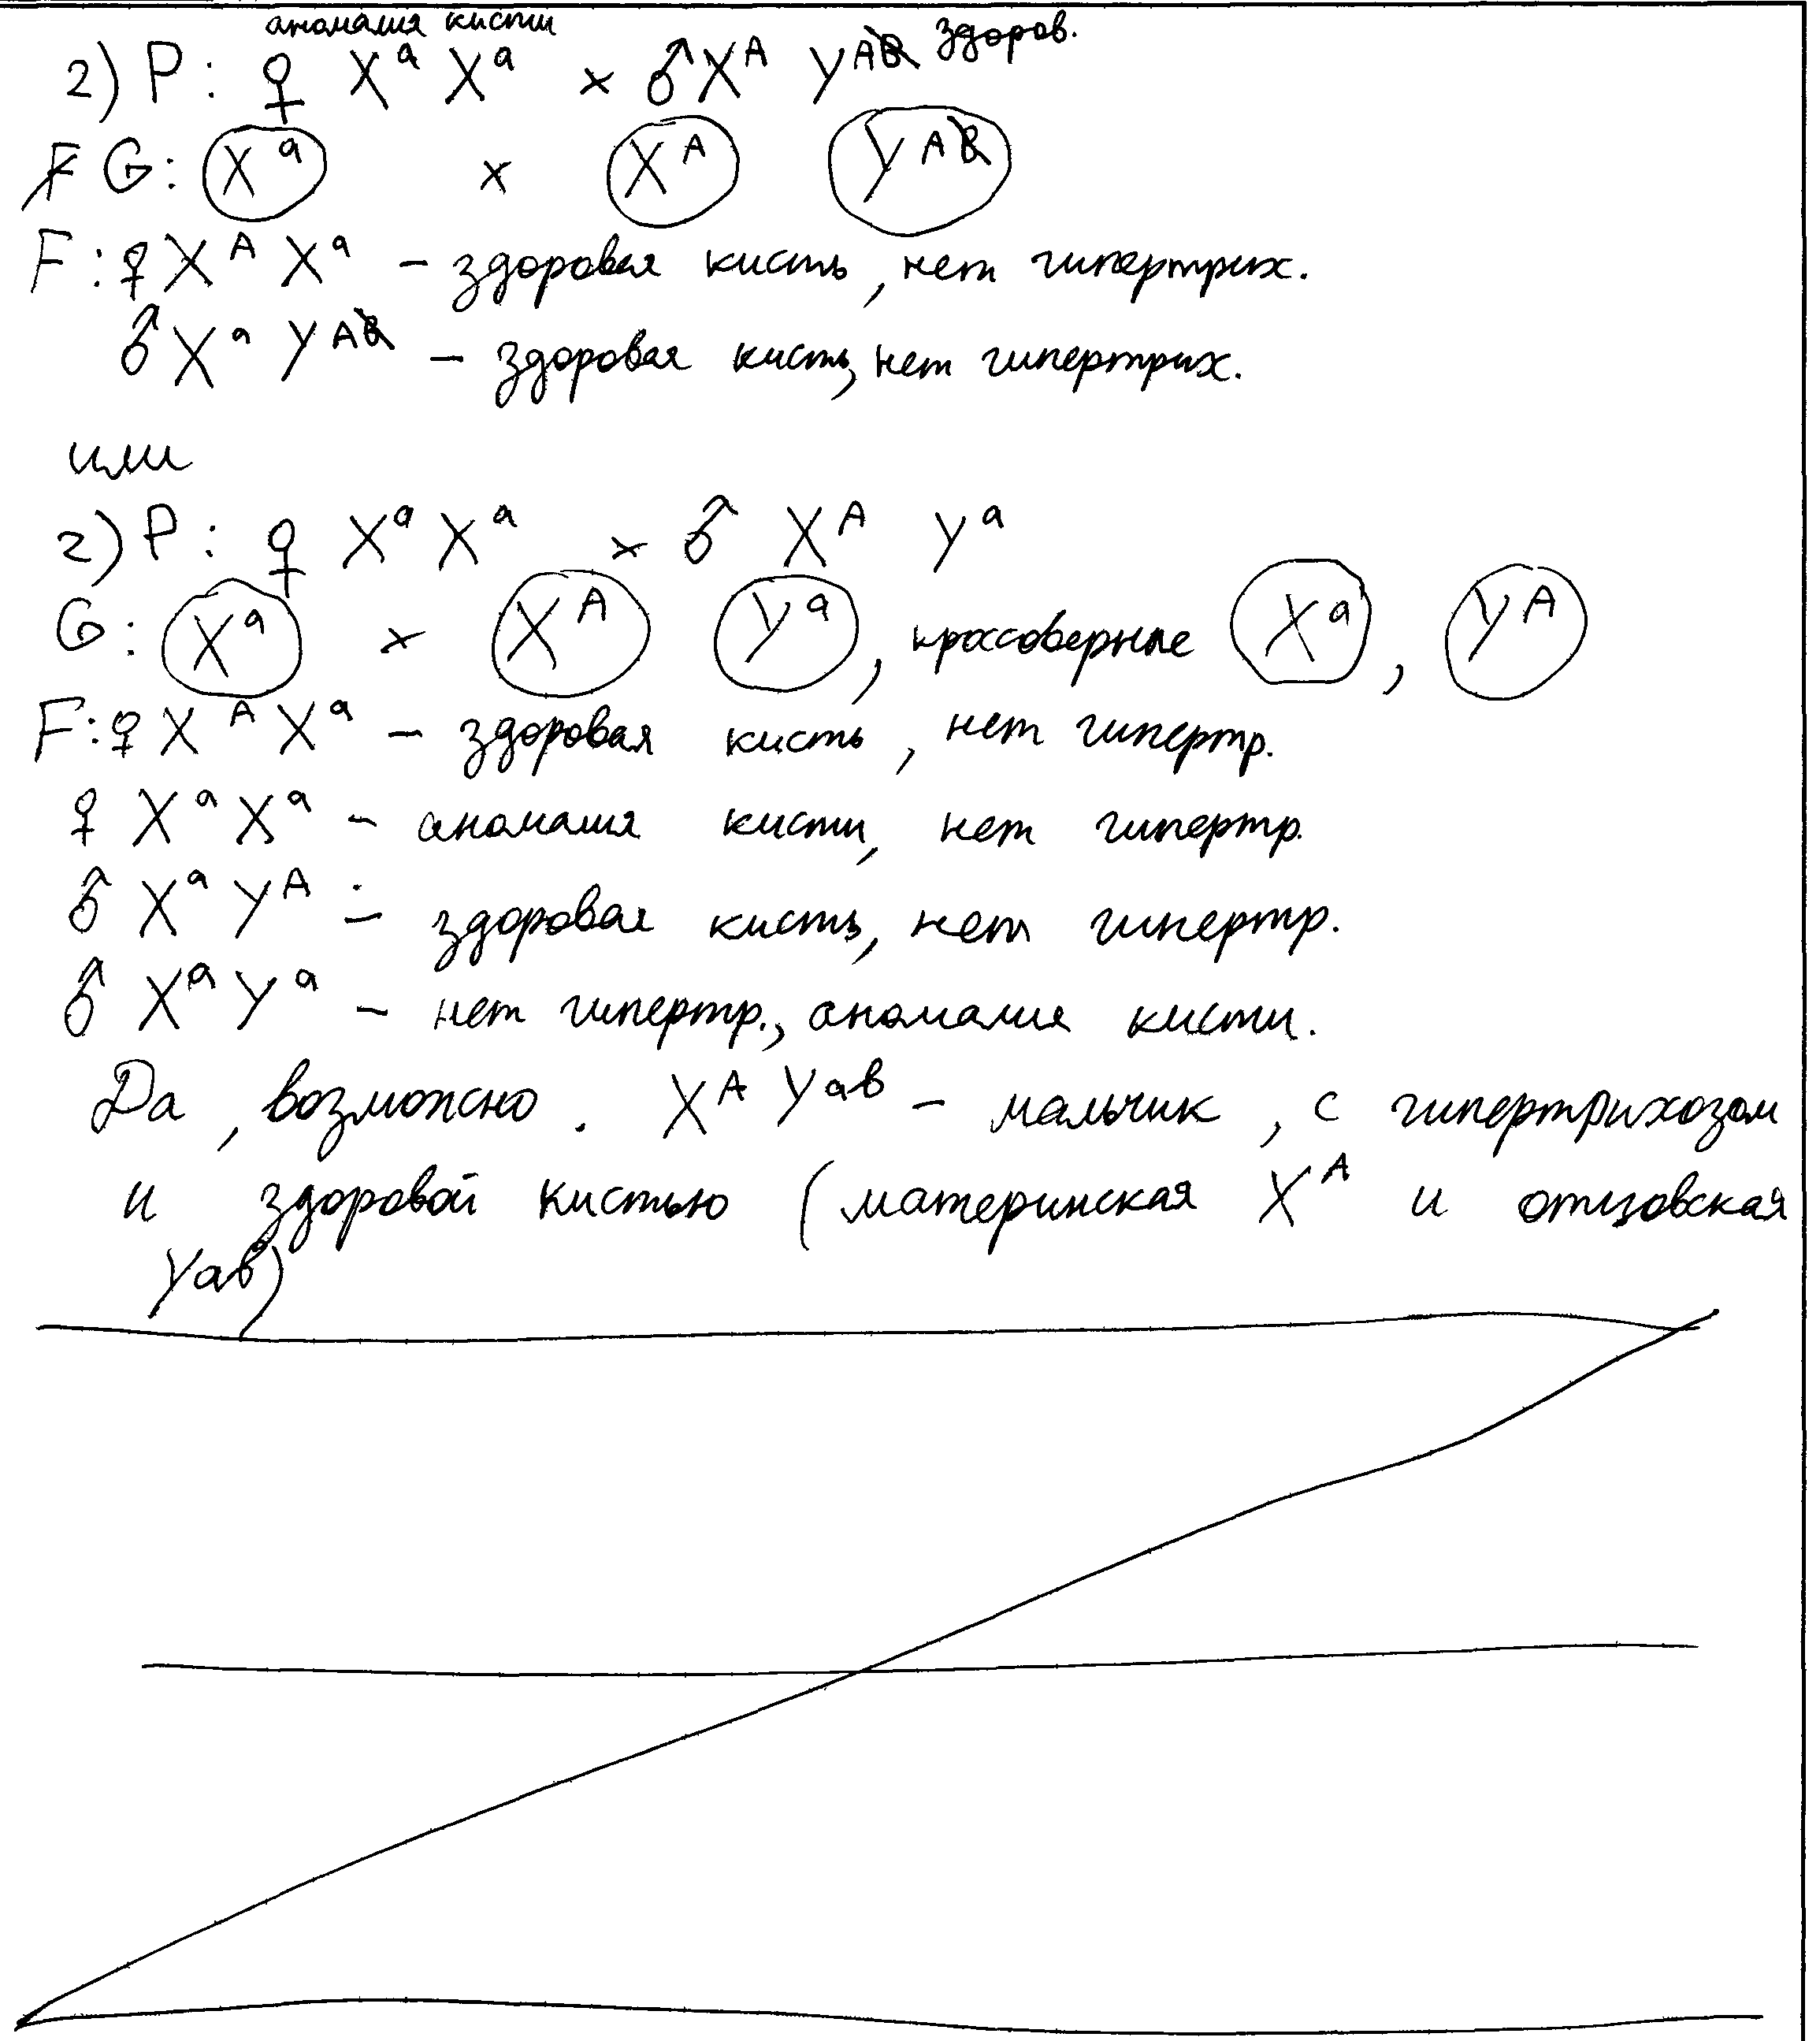 аномалия кисти
2) P: ♀ Xᵃ Xᵃ × ♂ Xᴬ Yᴬ здоров.
G: Xᵃ × Xᴬ Yᴬ
F: ♀ Xᴬ Xᵃ – здоровая кисть, нет гипертрих.
♂ Xᵃ Yᴬ – здоровая кисть, нет гипертрих.
или
2) P: ♀ Xᵃ Xᵃ × ♂ Xᴬ Yᵃ
G: Xᵃ × Xᴬ Yᵃ, кроссоверные Xᵃ, Yᴬ
F: ♀ Xᴬ Xᵃ – здоровая кисть, нет гипертр.
♀ Xᵃ Xᵃ – аномалия кисти, нет гипертр.
♂ Xᵃ Yᴬ – здоровая кисть, нет гипертр.
♂ Xᵃ Yᵃ – нет гипертр., аномалия кисти.
Да, возможно. Xᴬ Yᵃᵇ – мальчик, с гипертрихозом
и здоровой кистью (материнская Xᴬ и отцовская
Yᵃᵇ)